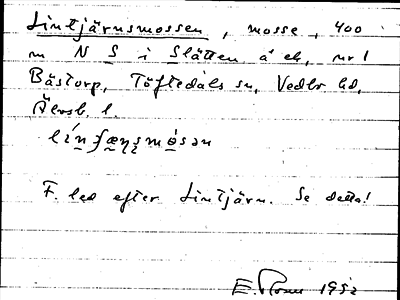 Lintjärnsmossen, mosse, 400
m N S i Slätten å ek, nr 1
Bästorp, Töftedals sn, Vedbo hd,
Älvsb. l.
F. led efter Lintjärn. Se detta!
1952